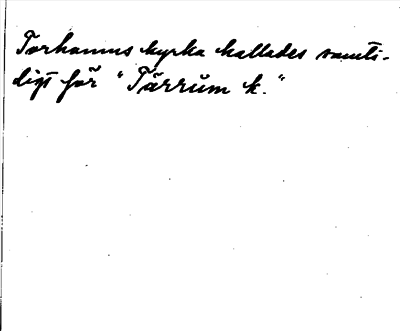 Torhamns kyrka kallades samti-
digt för "Tärrŭm k."